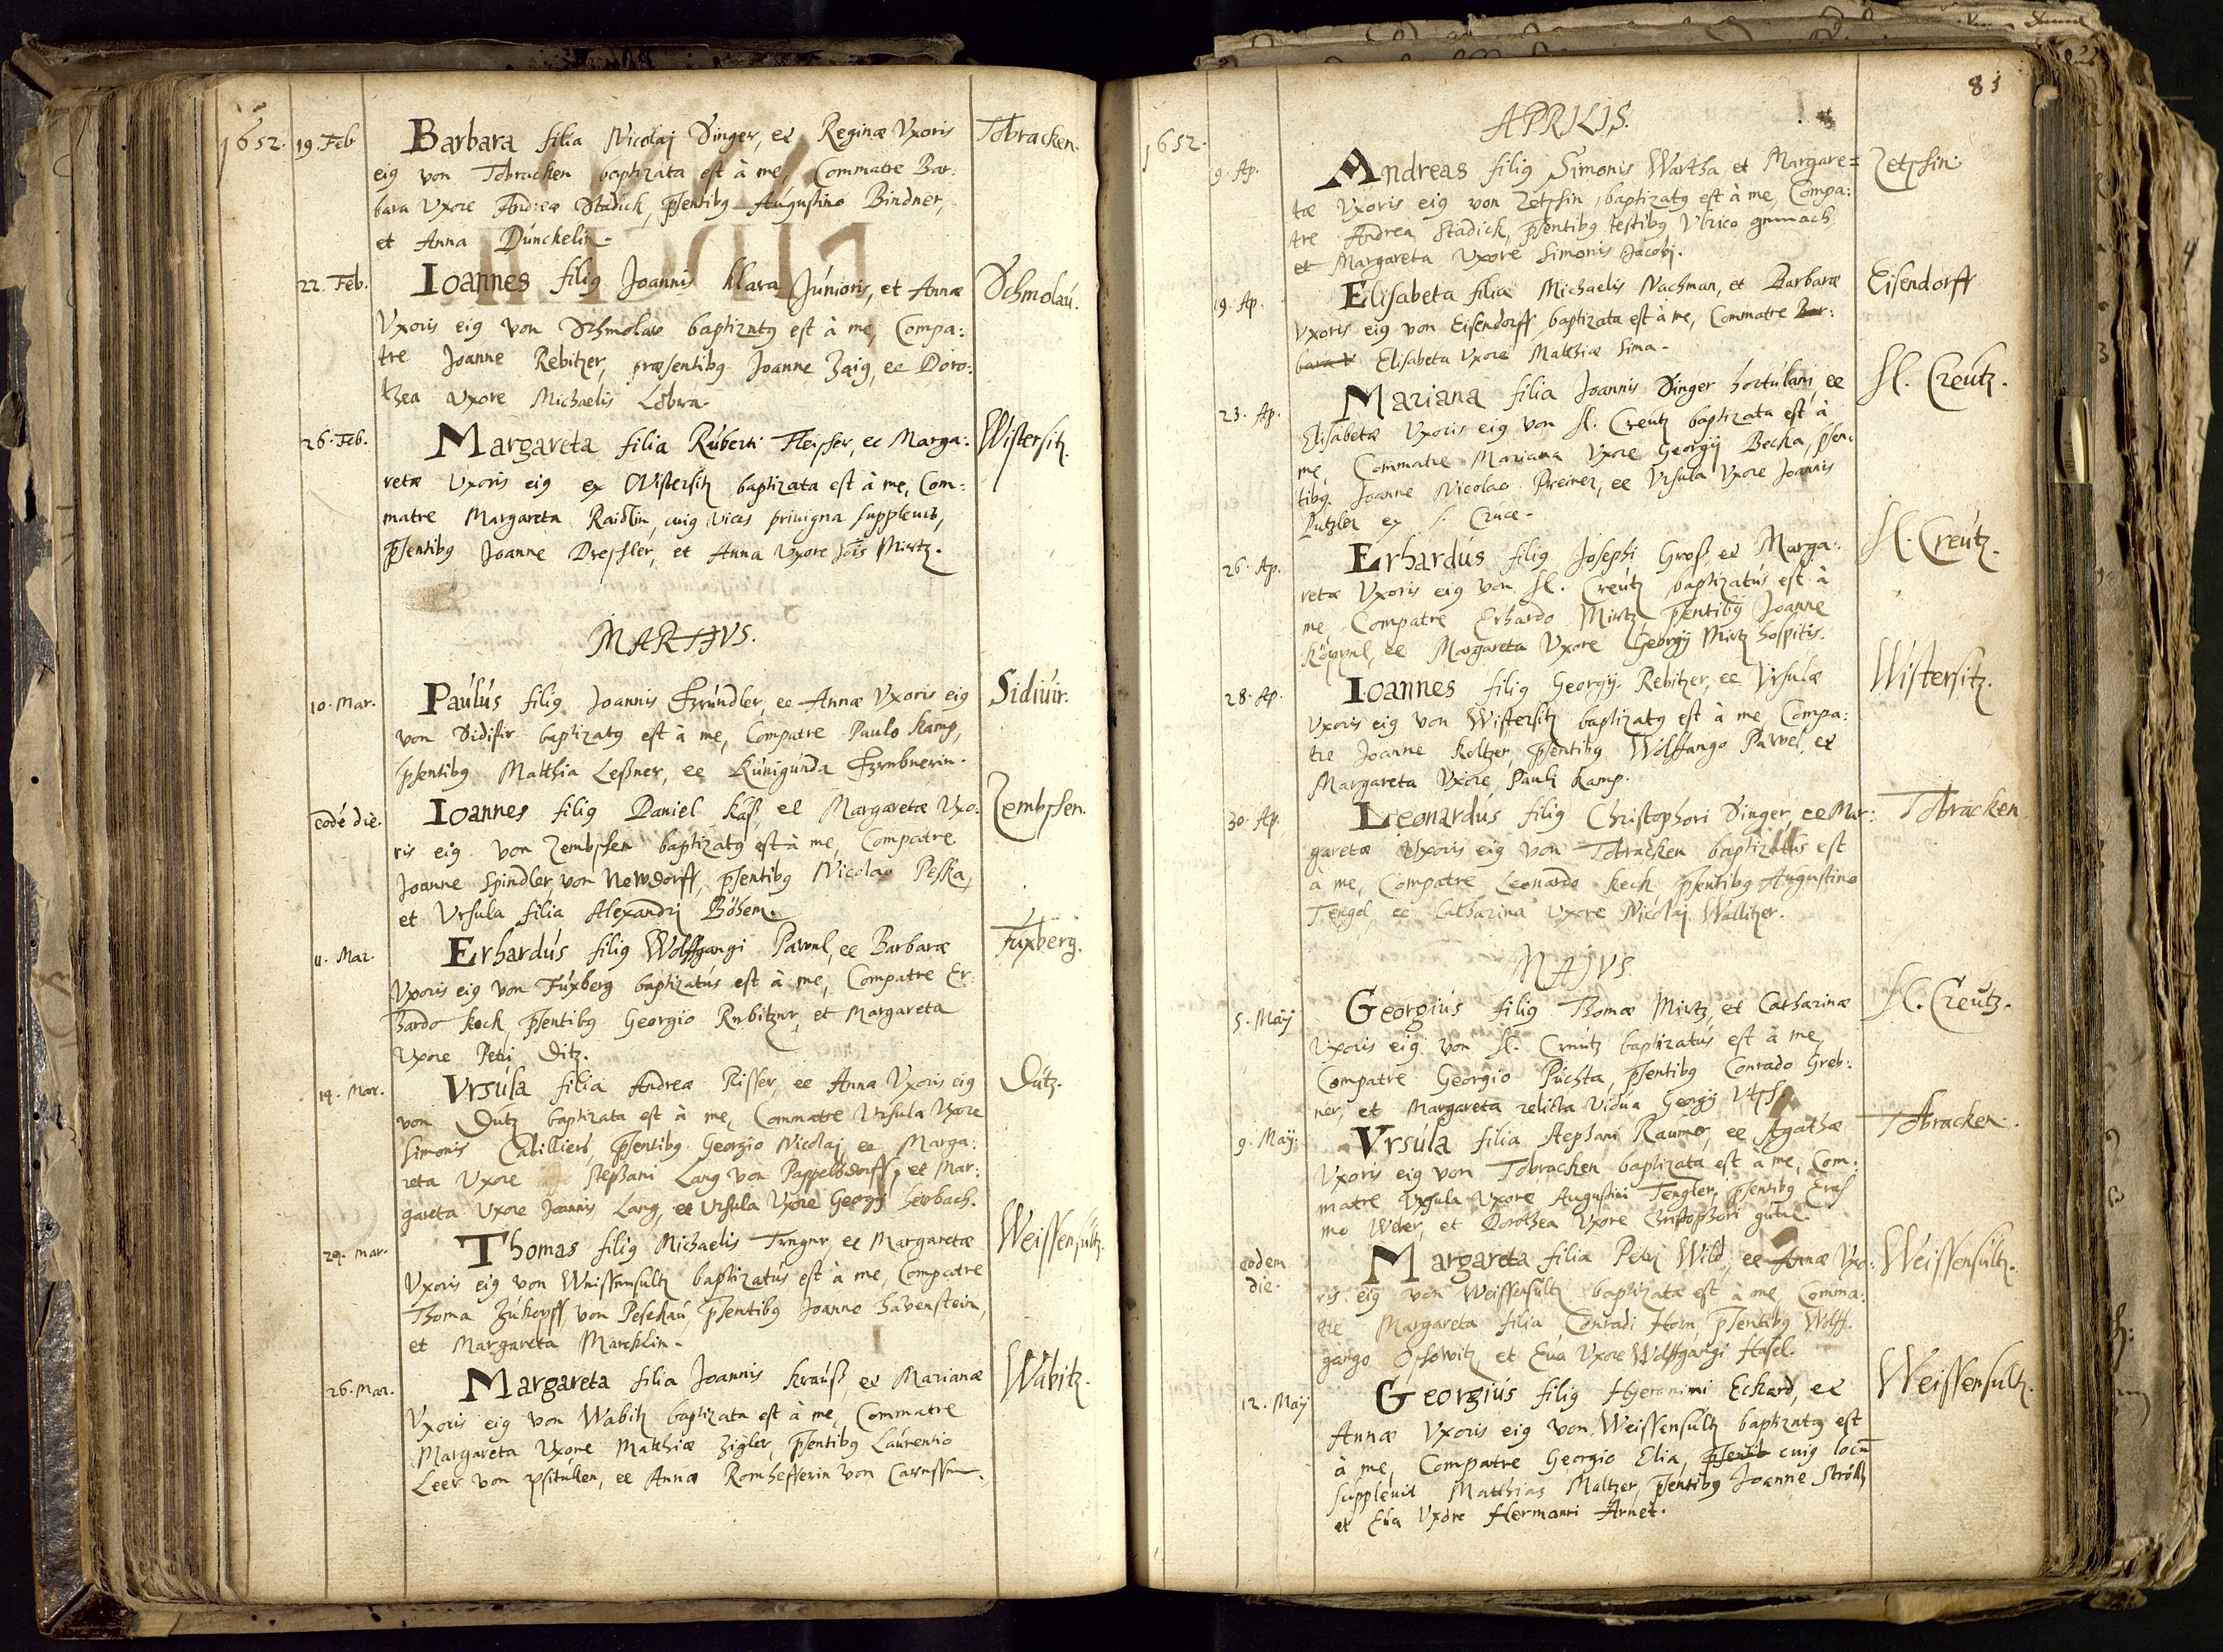 1652. 19. Feb Barbara filia Nicolaj Singer, et Reginæ Vxoris Tobracken.
eig von Tobracken baptizata est à me, Commatre Bar:
bara Vxore Andreæ Stadick, pſentibg Augustino Bindner,
et Anna Dünckelin.
22. Feb. Ioannes filig Joannis Klara Junioris, et Annæ Schmolau.
Vxoris eig von Schmolaw baptizatg est à me, Compa:
tre Joanne Rebitzer, præsentibg Joanne Zaig, et Doro:
thea Vxore Michaelis Löbra.
26. Feb. Margareta filia Ruberti Fleisser, et Marga: Wistersitz.
retæ Vxoris eig ex Wistersitz baptizata est à me, Com:
matre Margareta Raidlin, cuig vices priuigna suppleuit,
pſentibg Joanne Dressler, et Anna Vxore Jois Mirtz.
MARTIVS.
10. Mar. Paulus filig Joannis Gründler et Annæ Vxoris eig Sidiuir.
von Sidifir baptizatg est à me, Compatre Paulo Kamp,
pſentibg Matthia Leßner, et Kunigunda
eodé die. Ioannes filig Daniel Käß et Margaretæ Vxo: Zembschen.
ris eig von Zembschen baptizatg est à me, Compatre
Joanne Spindler von Newdorff, pſentibg Nicolao Peska,
et Vrsula filia Alexandrj Böhem.
11. Mar. Erhardus filig Wolffgangi Pawel, et Barbaræ Fuxberg.
Vxoris eig von Fuxberg baptizatus est à me, Compatre Er:
hardo Keck, pſentibg Georgio Rebitzer, et Margareta
Vxore Petri Ditz.
19. Mar. Vrsula filia Andreæ Risser, et Annæ Vxoris eig Dutz.
von Dutz baptizata est à me, Commatre Vrsula Vxore
Simonis Cabilliers, pſentibg Georgio Nicolaj, et Marga:
reta Vxore Stephani Lang von Pappelsdorff, et Mar:
gareta Vxore Joannis Lang, et Vrsula Vxore Georgij Lewbach.
24. Mar. Thomas filig Michaelis Treger, et Margaretæ Weissensultz.
Vxoris eig von Weissensultz baptizatus est à me, Compatre
Thoma Zukopff von Pesekau, pſentibg Joanne Havenstein,
et Margareta Marcklin.
26. Mar. Margareta filia Joannis Krauß, et Marianæ Wabitz.
Vxoris eig von Wabitz baptizata est à me, Commatre
Margareta Vxore Matthiæ Zigler, pſentibg Laurentio
Leer von , et Anna Romhesserin von
83
APRILIS.
1652. 9. Ap. Andreas filig Simonis Wartha et Margare= Zetschin.
tæ Vxoris eig von Zetschin, baptizatg est à me, Compa:
tre Andrea Stadick, pſentibg testibg Vlrico
et Margareta Vxore Simonis Jacobj.
19. Ap. Elisabeta filia Michaelis Nachman, et Barbaræ Eisendorff
Vxoris eig von Eisendorff baptizata est à me, Commatre Bar:
bara V Elisabeta Vxore Matthiæ Sima.
23. Ap. Mariana filia Joannis Singer hortulani, et H. Creutz.
Elisabetæ Vxoris eig von H. Creutz baptizata est à
me, Commatre Mariana Vxore Georgij Becka, pſen:
tibg Joanne Nicolao Preiner, et Vrsula Vxore Joannis
Putzler ex S. Cruce.
26. Ap. Erhardus filig Josephi Groß et Marga: H. Creutz.
retæ Vxoris eig von H. Creutz baptizatus est à
me, Compatre Erhardo Mirtz, pſentibg Joanne
Köppel, et Margareta Vxore Georgij Mirtz hospitis.
28. Ap. Ioannes filig Georgij Rebitzer, et Vrsulæ Wistersitz.
Vxoris eig von Wistersitz baptizatg est à me, Compa:
tre Joanne Koltzer, pſentibg Wolffango Pawel, et
Margareta Vxore Pauli Kamp.
30. Ap. Leonardus filig Christophori Singer, et Mar: Tobracken
garetæ Vxoris eig von Tobracken baptizatus est
à me, Compatre Leonardo Keck, pſentibg Augustino
Tengel, et Catharina Vxore Nicolaj Wallitzer.
MAIVS.
5. Maÿ Georgius filig Thomæ Mirtz, et Catharinæ H. Creutz.
Vxoris eig von H. Creutz baptizatus est à me,
Compatre Georgio Puchta, pſentibg Conrado Greb:
ner, et Margareta relicta Vidua Georgij
9. Maÿ. Vrsula filia Stephani Raumer, et Agathæ Tobracken.
Vxoris eig von Tobracken baptizata est à me, Com:
matre Vrsula Vxore Augustini Tengler, pſentibg Eras
mo Weer, et Dorothea Vxore Christophori
eodem die. Margareta filia Petrj Wild, et Annæ Vxo: Weissensultz.
ris eig von Weissensultz baptizata est à me, Comma:
tre Margareta filia Conradi Horn, pſentibg Wolff:
gango Oschowitz, et Eua Vxore Wolffgangi Hasel.
12. Maÿ Georgius filig Hyeronimi Eckard, et Weissensultz.
Annæ Vxoris eig von Weissensultz baptizatg est
à me, Compatre Georgio Elia, pſentib cuig locū
suppleuit Matthias Maltzer, pſentibg Joanne Strölh,
et Eua Vxore Hermanni Arnet.